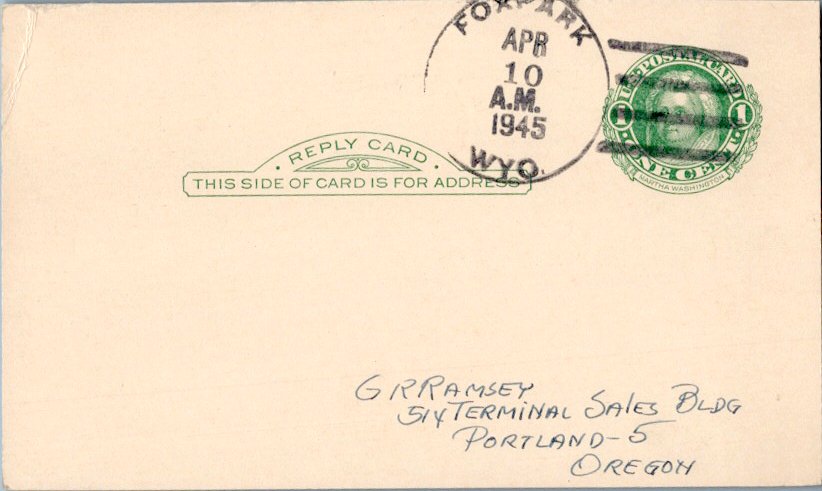 FOXPARK
APR
10
A.M.
1945
WYO.
U.S. POSTAL CARD
1 1
ONE CENT
MARTHA WASHINGTON
· REPLY CARD ·
THIS SIDE OF CARD IS FOR ADDRESS
G R RAMSEY
514 TERMINAL SALES BLDG
PORTLAND-5
OREGON